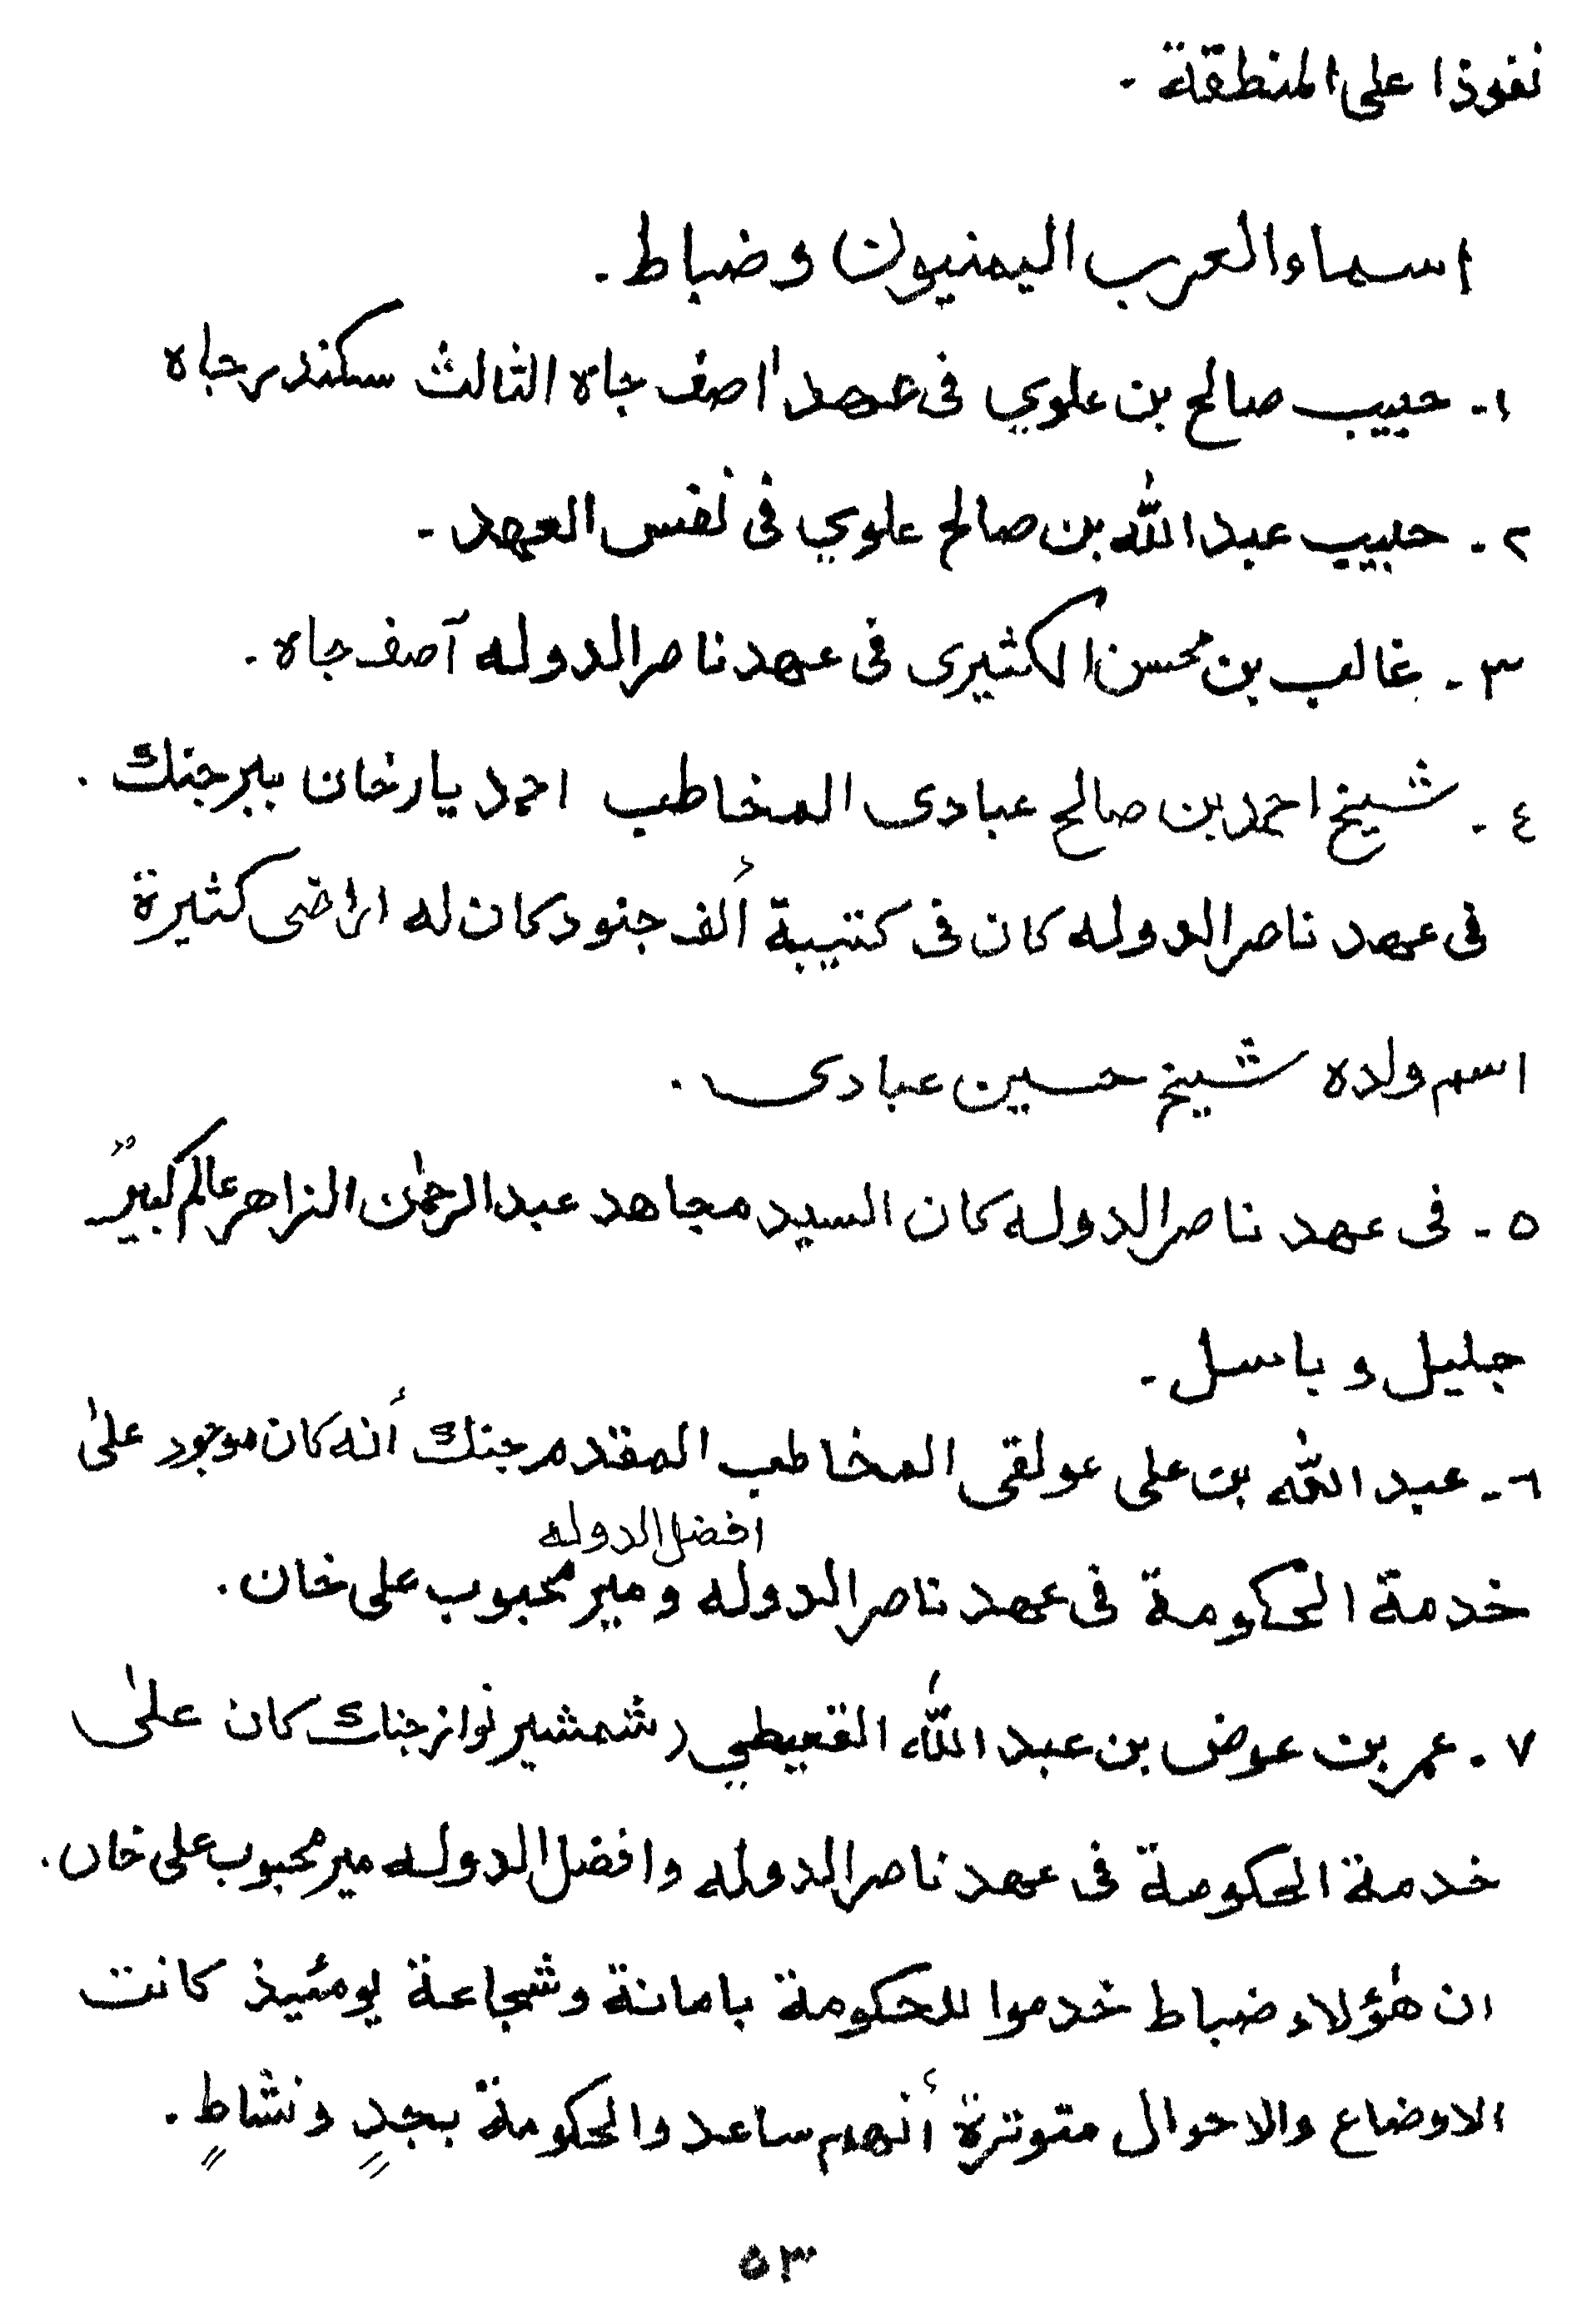 نفوذا على المنطقة -
اسماء العرب اليمنيون و ضباط .
١- حبيب صالح بن علوي فى عهد اصف جاه الثالث سكندر جاه
٢- حبيب عبد الله بن صالح علوي فى نفس العهد -
٣- غالب بن محسن الكثيرى فى عهد ناصر الدوله آصف جاه .
٤- شيخ احمد بن صالح عبادى المخاطب احمد يار خان ببر جنگ .
فى عهد ناصر الدوله كان فى كتيبة ألف جنود كان له اراضى كثيرة
اسم ولده شيخ حسين عبادى .
٥- فى عهد ناصر الدوله كان السيد مجاهد عبد الرحمٰن الزاهر عالم كبيرٌ
جليل و باسل -
٦- عبد الله بن على عولقى المخاطب المقدم جنگ أنه كان موجود علىٰ
افضل الدوله
خدمة الحكومة فى عهد ناصر الدوله و مير محبوب على خان .
٧- عمر بن عوض بن عبد الله القعيطي ( شمشير نواز جنگ كان علىٰ
خدمة الحكومة فى عهد ناصر الدوله وافضل الدوله مير محبوب على خاں .
ان هٰؤلاء ضباط خدموا للحكومة بامانة وشجاعة يومئيذ كانت
الاوضاع والاحوال متوترة أنهم ساعد والحكومة بجدٍ ونشاطٍ .
٥٣